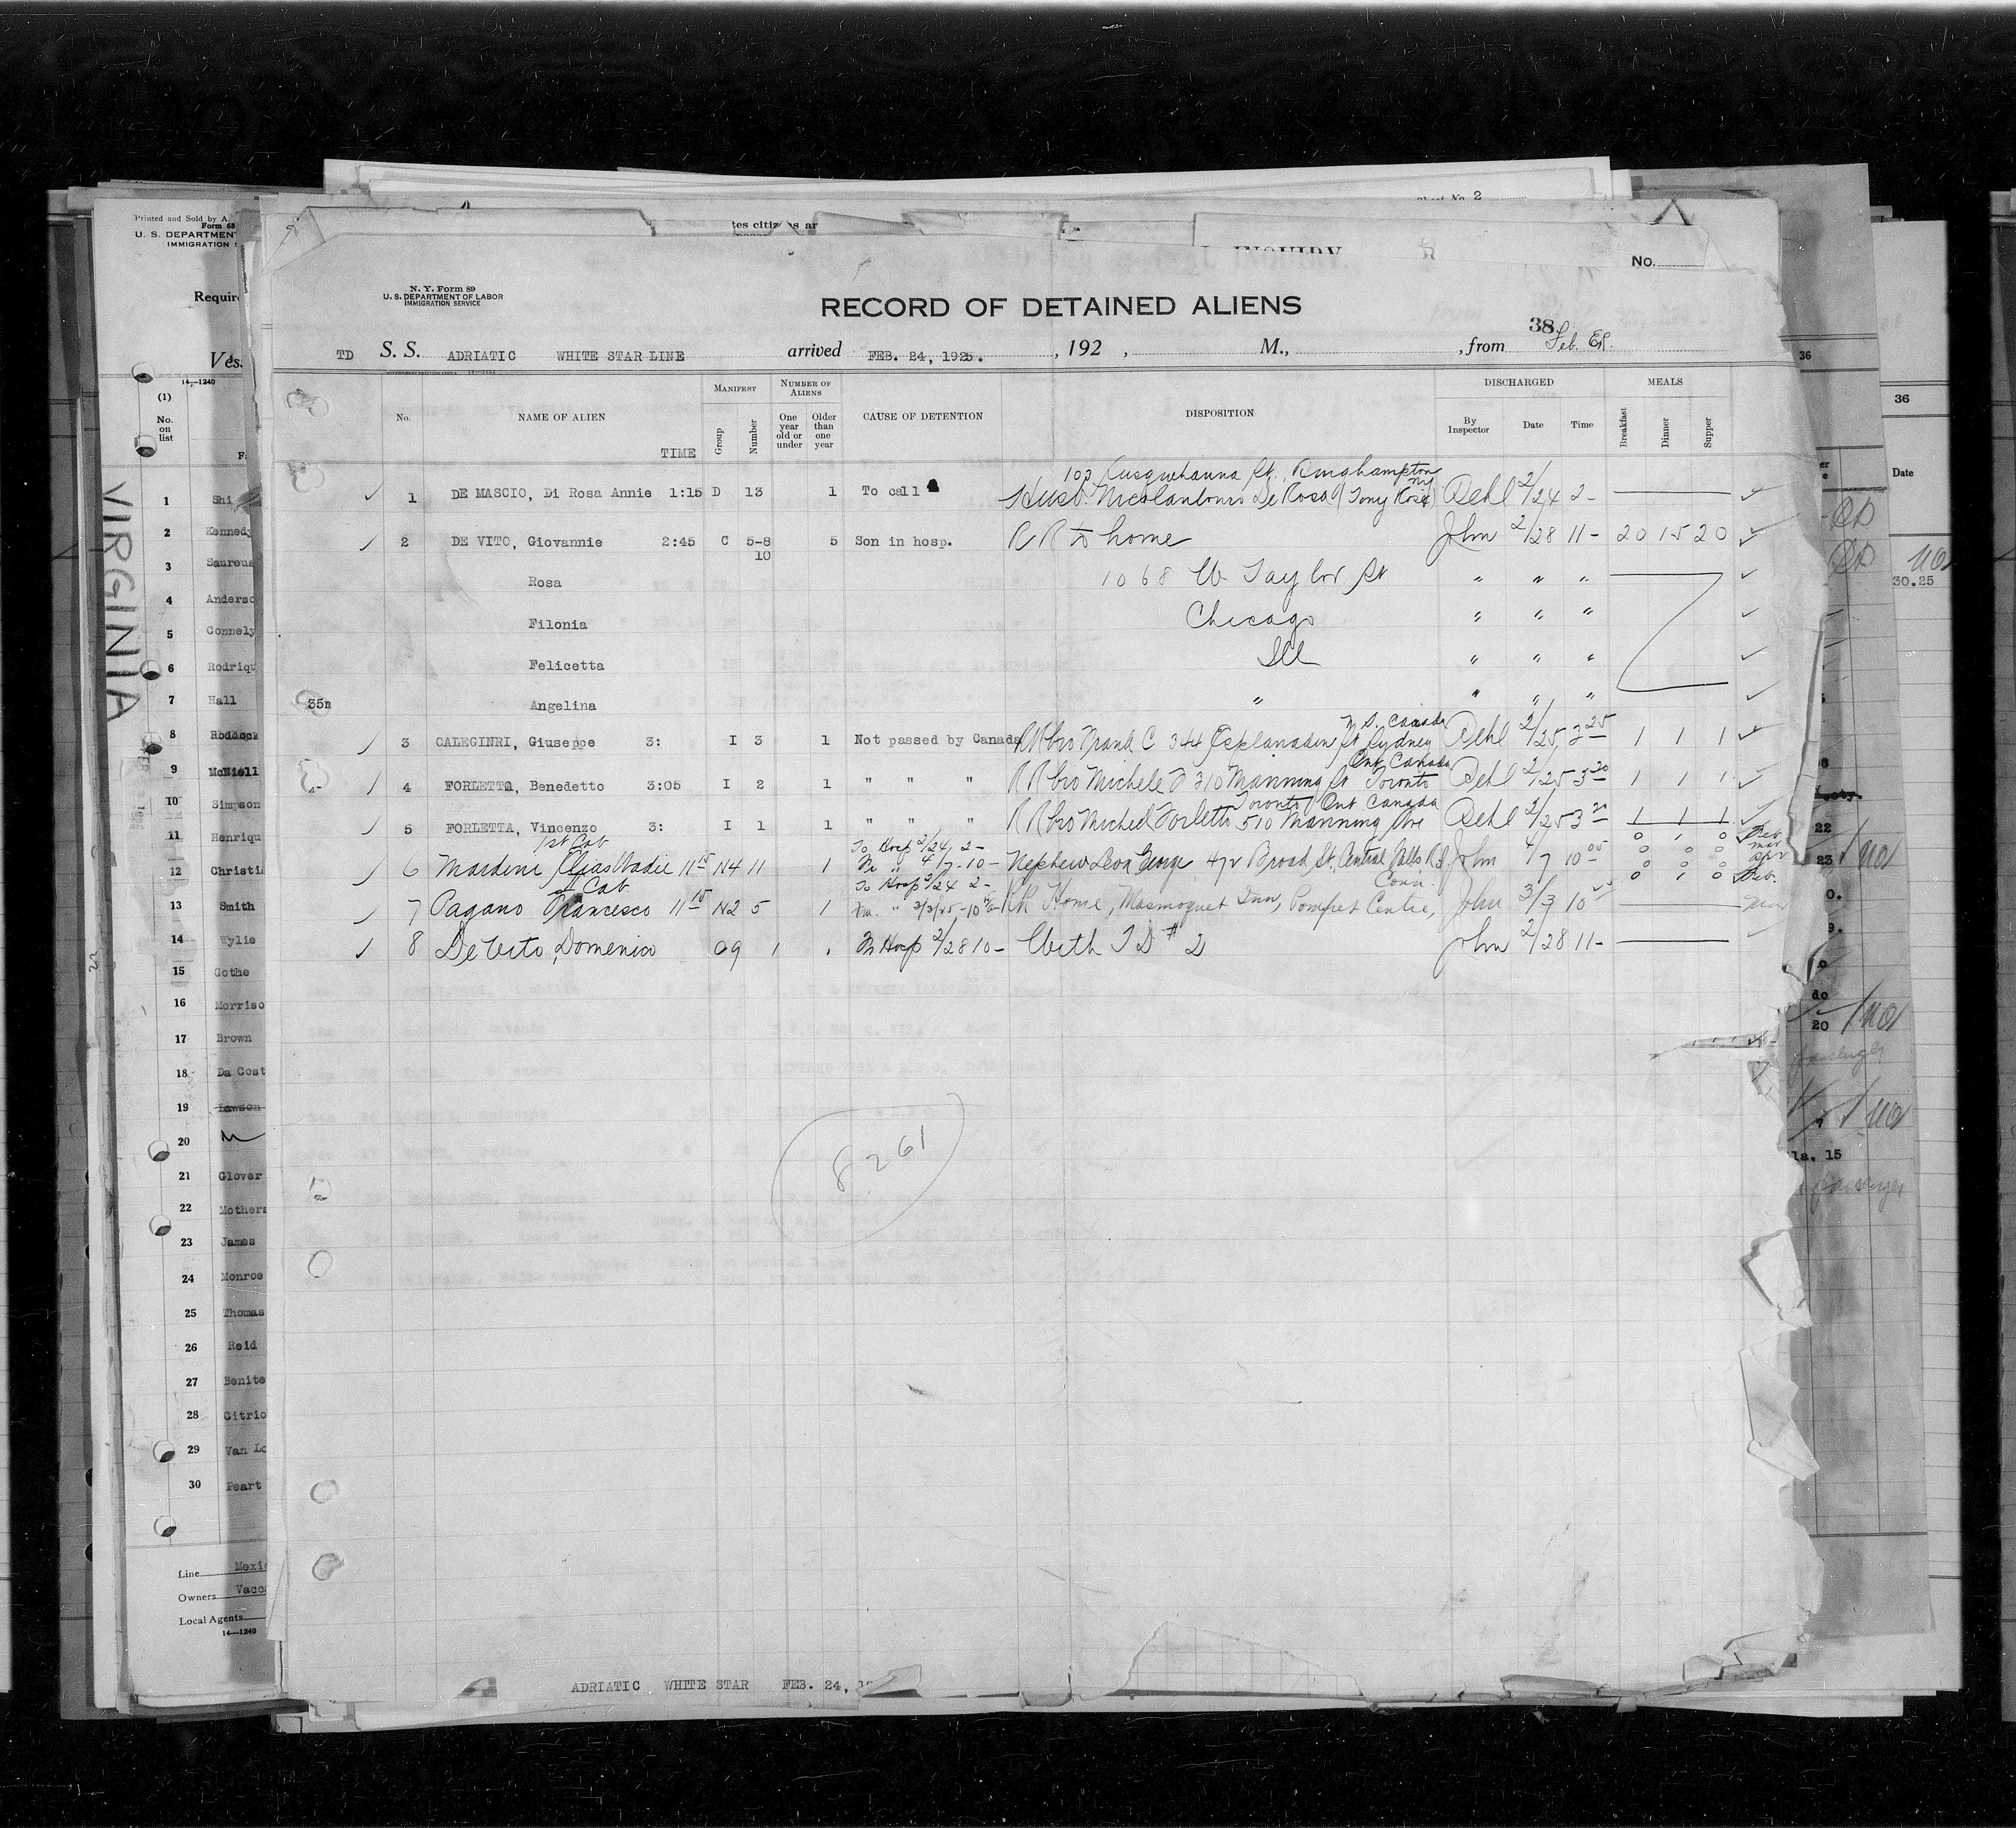 Sheet No. 2
tes citizens ar
INQUIRY
No.
N. Y. Form 89
U. S. DEPARTMENT OF LABOR
IMMIGRATION SERVICE
RECORD OF DETAINED ALIENS
38
TD S. S. ADRIATIC WHITE STAR LINE arrived FEB. 24, 1925. , 192 , M., , from Feb.
MANIFEST NUMBER OF ALIENS DISCHARGED MEALS
No. NAME OF ALIEN TIME Group Number One year old or under Older than one year CAUSE OF DETENTION DISPOSITION By Inspector Date Time Breakfast Dinner Supper
103 Susquehanna St., Binghampton NY
1 DE MASCIO, Di Rosa Annie 1:15 D 13 1 To call Husb. Nicolantonio De Rosa (Tony Rosa) Dehl 2/24 2-
2 DE VITO, Giovannie 2:45 C 5-8 5 Son in hosp. R R to home John 2/28 11- 20 15 20
10
Rosa 1068 W Taylor St " " "
Filonia Chicago " " "
Felicetta Ill " " "
35n Angelina " " " "
N.S. Canada
3 CALEGINRI, Giuseppe 3: I 3 1 Not passed by Canada RR bro Frank C 344 Esplanaden St Sydney Dehl 2/25 3 25 1 1 1
Ont Canada
4 FORLETTA, Benedetto 3:05 I 2 1 " " " R R bro Michele F 310 Manning St Toronto Dehl 2/25 3 20 1 1 1
Toronto, Ont Canada
5 FORLETTA, Vincenzo 3: I 1 1 " " " R R bro Michele Forletta 510 Manning Ave Dehl 2/25 3 20 1 1 1
1st Cab To Hosp 2/24, 2- 0 1 0 Feb
6 Mardini Elias Wadie 11 15 N4 11 1 Fr " 4/7-10- Nephew Leon George 472 Broad St. Central Falls R.I. John 4/7 10 05 0 0 0 mar
0 0 0 Apr
1st Cab To Hosp 2/24 2- Conn. 0 1 0 Feb.
7 Pagano Francesco 11 15 N2 5 1 Fr. " 3/3/25-10 RR Home, Masmoquet Inn, Pomfret Centre, John 3/3 10 Mar
8 De Vito, Domenico C 9 1 Fr Hosp 2/28 10- With T D # 2 John 2/28 11-
8261
ADRIATIC WHITE STAR FEB. 24,
Printed and Sold by A.
Form 68
U. S. DEPARTMENT
IMMIGRATION
Requir
Ves
14-1240
(1)
No. on list
VIRGINIA
1 Shi
2 Kennedy
3 Saureus
4 Anderso
5 Connely
6 Rodriqu
7 Hall
8 Roddock
9 McNiell
10 Simpson
11 Henriqu
12 Christi
13 Smith
14 Wylie
15 Gothe
16 Morriso
17 Brown
18 Da Cost
19 Lawson
20
21 Glover
22 Mothers
23 James
24 Monroe
25 Thomas
26 Reid
27 Benite
28 Citrio
29 Van Lo
30 Peart
Line Mexi
Owners Vacc
Local Agents
14-1240
36
36
Date
30.25
22
23
do
20
passenger
la. 15
passenger